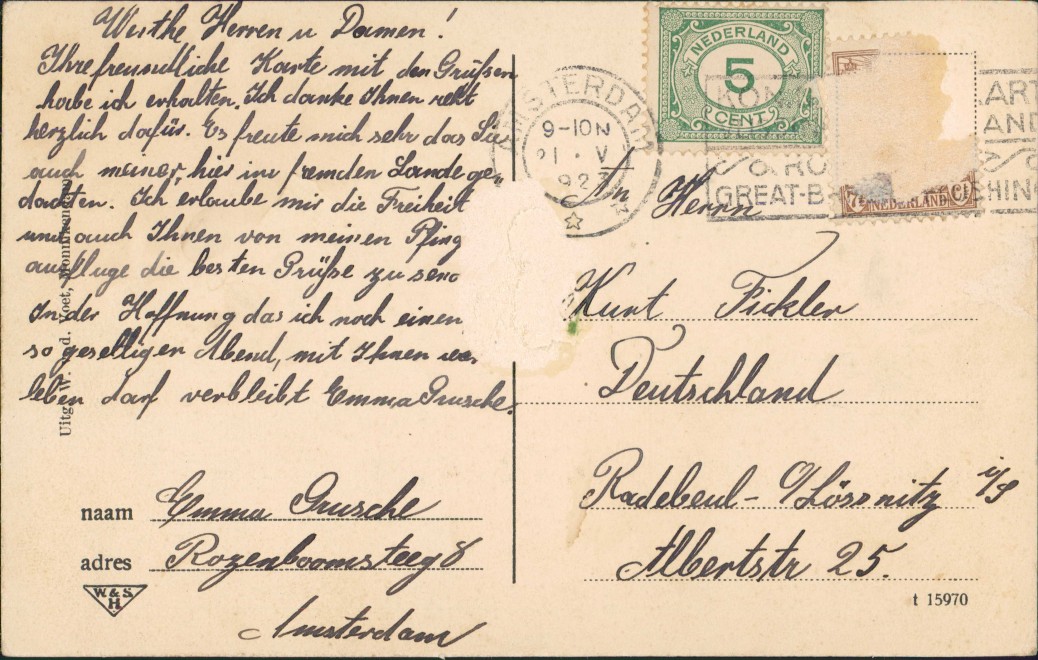 Werthe Herren u Damen!
Ihre freundliche Karte mit den Grüßen
habe ich erhalten. Ich danke Ihnen recht
herzlich dafür. Es freute mich sehr das Sie
auch meiner, hier im fremden Lande ge-
dachten. Ich erlaube mir die Freiheit
und auch Ihnen von meinen Pfing
ausfluge die besten Grüße zu send
In der Hoffnung das ich noch einen
so geselligen Abend, mit Ihnen
leben darf verbleibt Emma Grusche.
naam Emma Grusche
adres Rozenboomsteeg 8
Amsterdam
W. & S.
H.
Uitg. W. d. Poet,
AMSTERDAM
9-10N
1 . V
1923
NEDERLAND
5
CENT
7½ NEDERLAND CT
GREAT-B
SHING
An Herrn
Kurt Fickler
Deutschland
Radebeul- O/Lössnitz i/S
Albertstr 25.
t 15970